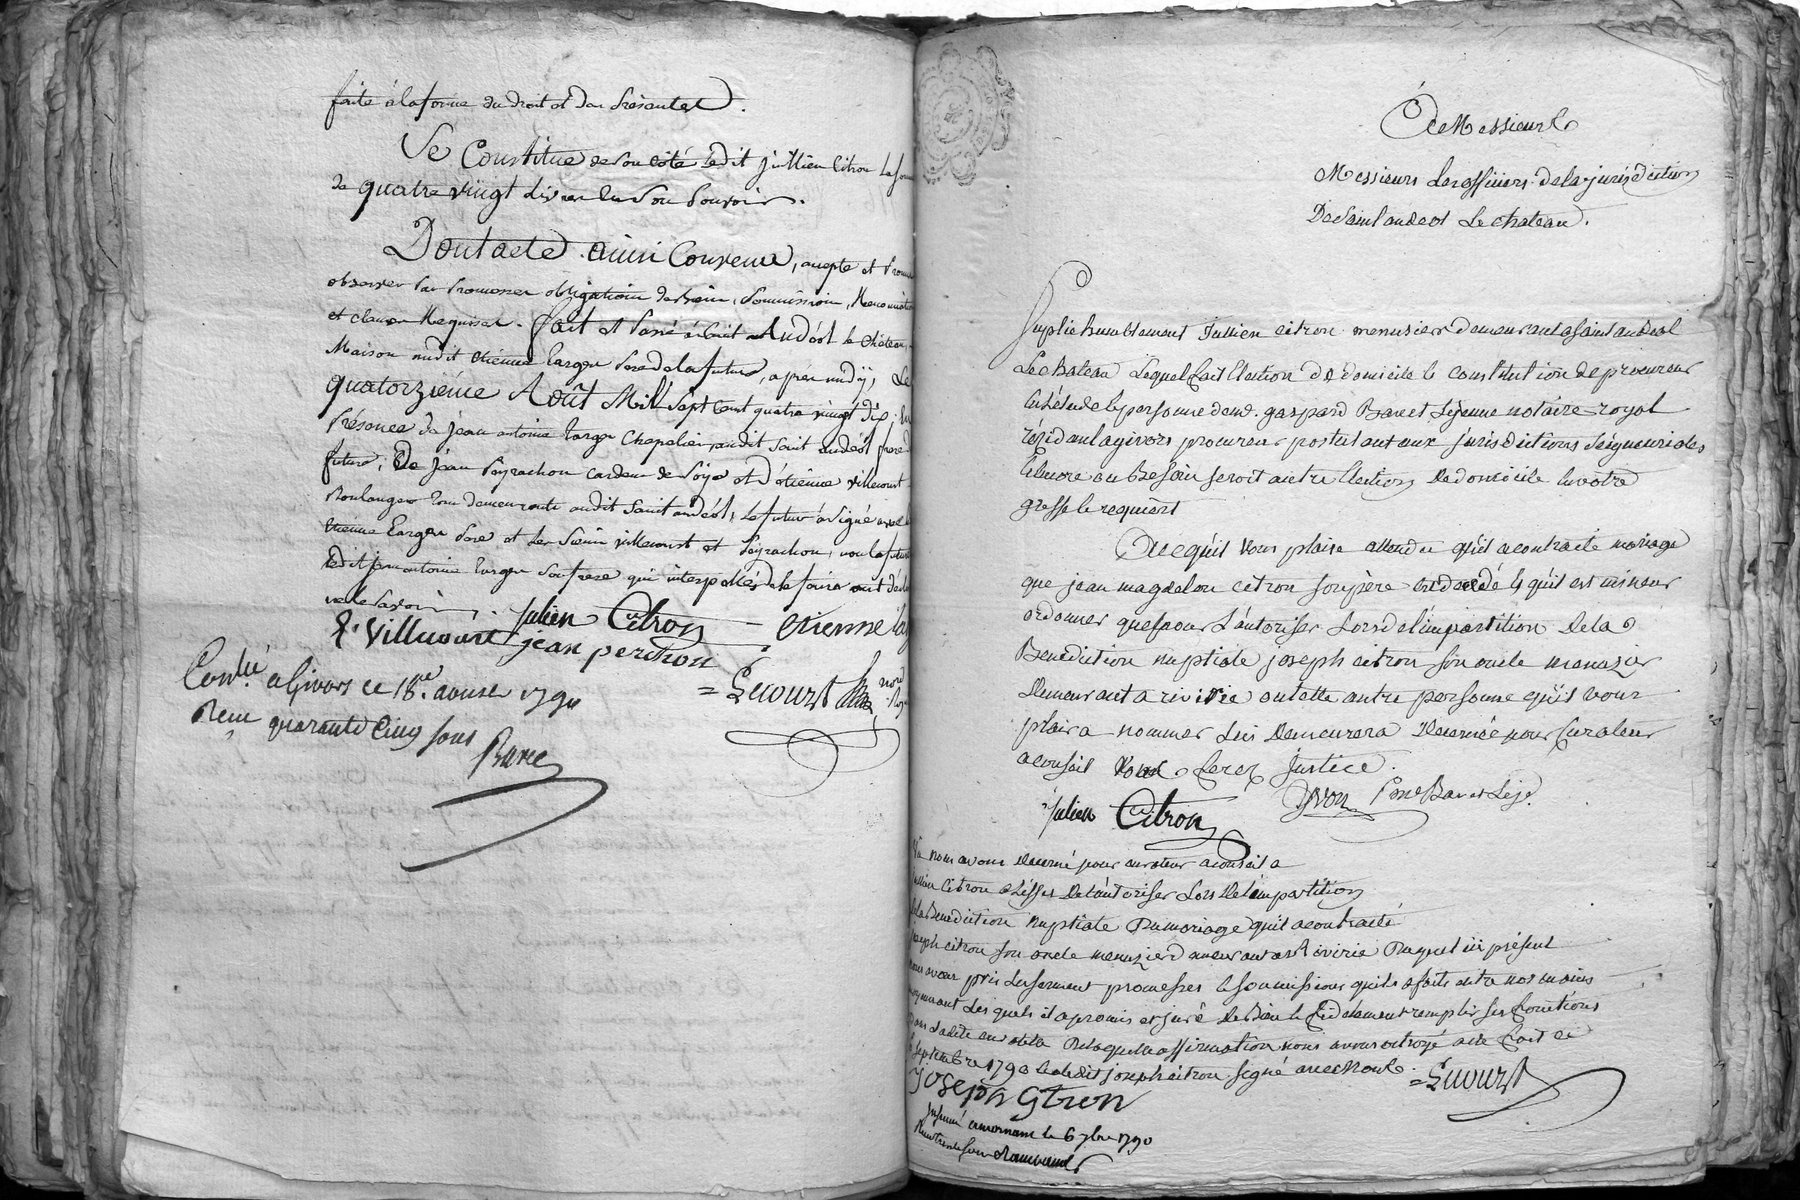 faite à la forme du droit et des présentes.
Se Constitue de son coté ledit jullien Citron la som
de quatre vingt livres en son pouvoir.
Dont acte. ainsi Convenu, accepté et prom
observer par promesses obligations de biens, soumissions, Renonciation
et clauses Requises. fait et passé à saint Andéol le château,
Maison mudit etienne Larger pere de la future, après midÿ, Le
quatorziéme Août Mil sept cent quatre vingt dix; en
présence de jean antoine Larger chapelier audit saint andéol frere
future, De jean peyrachon cardeur de soye et D'étienne villecourt
Boulanger tous demeurants audit saint andéol, le futur a signé avec
etienne Larger pere et les sieurs villecourt et peyrachon, non la future
ledit jean antoine Larger son frere qui interpellés de le faire ont décla
ne le savoir.
julien Citron - etienne lar
E. Villecourt jean perchon
= Lecourt
nore
Con.lé a Givors ce 18.me aoust 1790
Recu quarante Cinq sous
Baret
A Messieurs
Messieurs Les officiers de la jurisdiction
De Saint andeol Le chateau.
Suplie humblement Jullien citron menusier demeurant a saint andeol
Le chateau Lequel fait Election de domicile & constitution de procureur
En l'étude & personne de me. gaspard Baret Lejeune notaire royal
résidant a givors procureur postulant aux jurisdictions seigneuriales
Encore ou Besoin seroit autre Election de domicile En votre
greffe le requiert
Ace quil vous plaise attendu qu'il a contracté mariage
que jean magdelon citron son père est décédé & qu'il est mineur
ordonner que pour L'autoriser Lors de l'impartition de la
Benediction nuptiale joseph citron son oncle menuzier
demeurant a riverie ou telle autre personne qu'il vous
plaira nommer Lui demeurera décernée pour Curateur
a conseil vous ferez justice.
julien Citron
Baret Leje.
nous avons decerné pour curateur a conseil a
jullien Citron a l'effet De L'autoriser Lors De L'impartition
de la Benediction nuptiale Du mariage qu'il a contracté
joseph citron son oncle menuzier demeurant a Riverie Duquel ici présent
nous avons pris Le serment promesses & soumissions qu'il a faits entre nos mains
moyennant Les quels il a promis et juré De Bien & fidelement remplir ses fonctions
De laquelle affirmation nous avons octroyé acte fait ce
septembre 1790 & a ledit joseph citron signé avec nous.
= Lecourt
Joseph Citron
a mornant le 6 7bre 1790